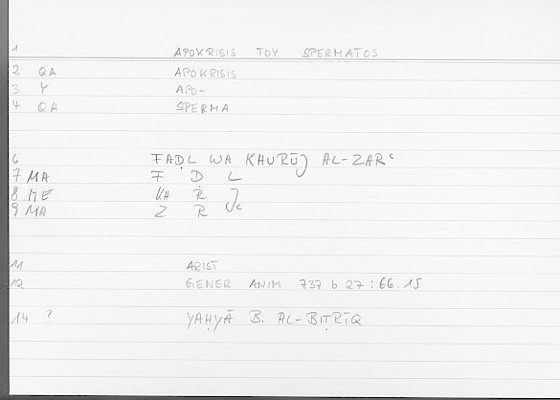 1 APOKRISIS TOY SPERMATOS
2 QA APOKRISIS
3 Y APO-
4 QA SPERMA
6 FAḌL WA KHURŪJ AL-ZARᶜ
7 MA F Ḍ L
8 ME KH R J
9 MA Z R ᶜ
11 ARIST
12 GENER ANIM 737 b 27 : 66.15
14 ? YAḤYĀ B. AL-BIṬRĪQ